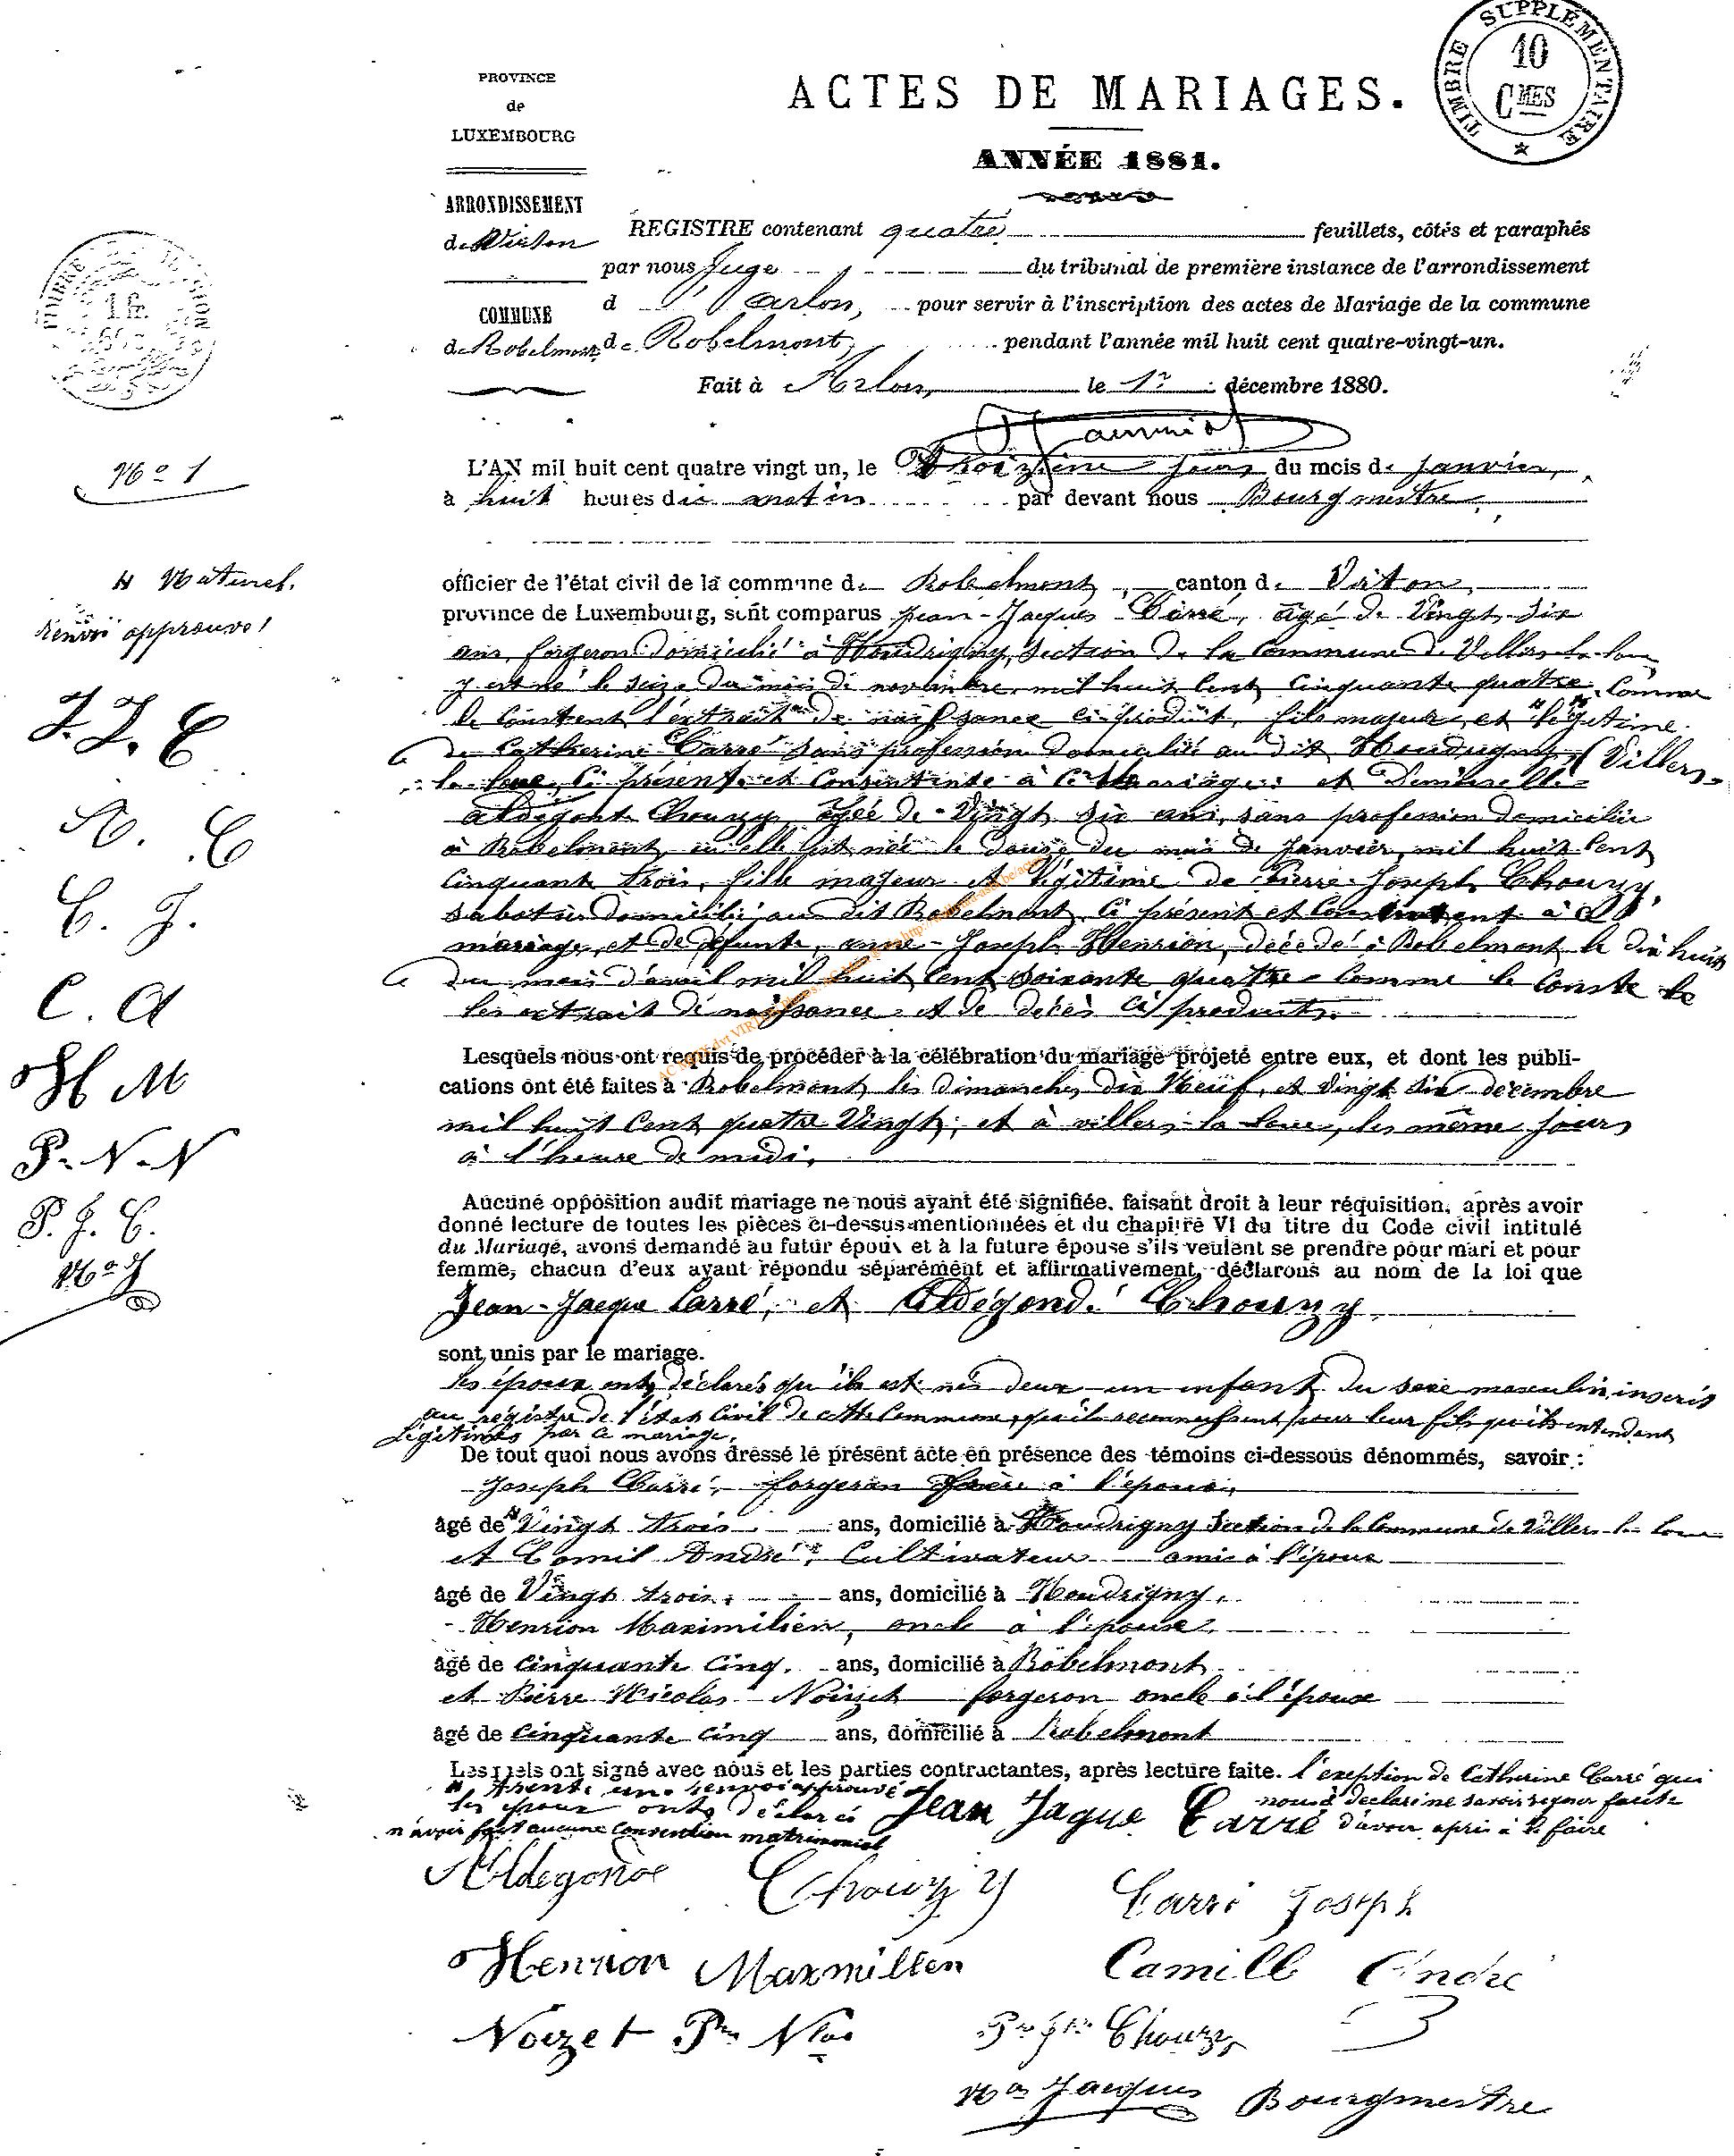 PROVINCE
de
LUXEMBOURG
ARRONDISSEMENT
de Virton
COMMUNE
de Robelmont
ACTES DE MARIAGES.
ANNÉE 1881.
TIMBRE SUPPLÉMENTAIRE
10
CMES
1 fr.
REGISTRE contenant quatre feuillets, côtés et paraphés
par nous Juge du tribunal de première instance de l'arrondissement
d'Arlon, pour servir à l'inscription des actes de Mariage de la commune
de Robelmont, pendant l'année mil huit cent quatre-vingt-un.
Fait à Arlon, le 1r décembre 1880.
No 1
L'AN mil huit cent quatre vingt un, le troizième jour du mois de janvier,
à huit heures du matin par devant nous Bourgmestre
officier de l'état civil de la commune de Robelmont, canton de Virton,
province de Luxembourg, sont comparus Jean-Jacques Carré, âgé de Vingt Six
ans, forgeron domicilié à Houdrigny, Section de la Commune de Villers-la-loue
y est né le seize du mois de novembre mil huit Cent Cinquante quatre Comme
le Constent l'extrait de naissance ci produit, fils majeur et légetime
# Naturel.
renvoi approuvé!
de Catherine Carré sans profession domiciliée au dit Houdrigny (Villers-
la-loue, Ci présente et Consentente à Ce mariage: et Demiselle
Aldégonde Chouzy, âgée de Vingt six ans, sans profession domiciliée
à Robelmont, où elle est née le douze du mois de Janvier, mil huit Cent
Cinquante trois, fille majeur et légitime de Pierre-Joseph Chouzy,
sabotier domicilié au dit Robelmont, Ci présent et Consentent à Ce
mariage, et de défunte, anne-Joseph Henrion, décédé à Robelmont le dix huit
du mois d'avril mil huit Cent soixante quatre Comme le Conste le
les extrait de naissance et de décès Ci produits.
Lesquels nous ont requis de procéder à la célébration du mariage projeté entre eux, et dont les publi-
cations ont été faites à Robelmont les dimanches dix Neuf, et Vingt Six décembre
mil huit Cent quatre Vingt, et à villers-la-loue, les même jours
à l'heure de midi.
Aucune opposition audit mariage ne nous ayant été signifiée, faisant droit à leur réquisition, après avoir
donné lecture de toutes les pièces ci-dessus mentionnées et du chapitre VI du titre du Code civil intitulé
du Mariage, avons demandé au futur époux et à la future épouse s'ils veulent se prendre pour mari et pour
femme, chacun d'eux ayant répondu séparément et affirmativement, déclarons au nom de la loi que
Jean-Jacque Carré, et Aldégonde Chouzy
sont unis par le mariage.
les époux onts déclarés qu'ils est nés deux un enfant du sexe masculin, inscrit
au régistre de l'état Civil de cette Commune, qu'il reconnaissent pour leur fils qu'ils entendent
légitimés par ce mariage.
De tout quoi nous avons dressé le présent acte en présence des témoins ci-dessous dénommés, savoir :
Joseph Carré, forgeron frère à l'époux,
âgé de Vingt trois ans, domicilié à Houdrigny Section de la Commune de Villers-la-loue
et Camil André, Cultivateur amis à l'époux
âgé de Vingt trois, ans, domicilié à Houdrigny,
Henrion Maximilien, oncle à l'épouse,
âgé de Cinquante Cinq, ans, domicilié à Robelmont
et Pierre Nicolas Noizet forgeron oncle à l'épouse
âgé de Cinquante Cinq ans, domicilié à Robelmont
Lesquels ont signé avec nous et les parties contractantes, après lecture faite. l'exeption de Catherine Carré qui
nous à déclaré ne savoir signer faute
d'avoir apris à le faire
# Trente une renvoi approuvé
les époux onts déclarés
n'avoir fait aucune Convention matrimonial
Jean Jaque Carré
Aldegonde Chouzy
Carré Joseph
Henrion Maxmillen
Camille André
Noizet Pre Nlas
Pre Jph Chouzy
Nas Jacques Bourgmestre
J. J. C
A. C
C. J.
C. A
H M
P. N. N
P. J. C.
Nas J